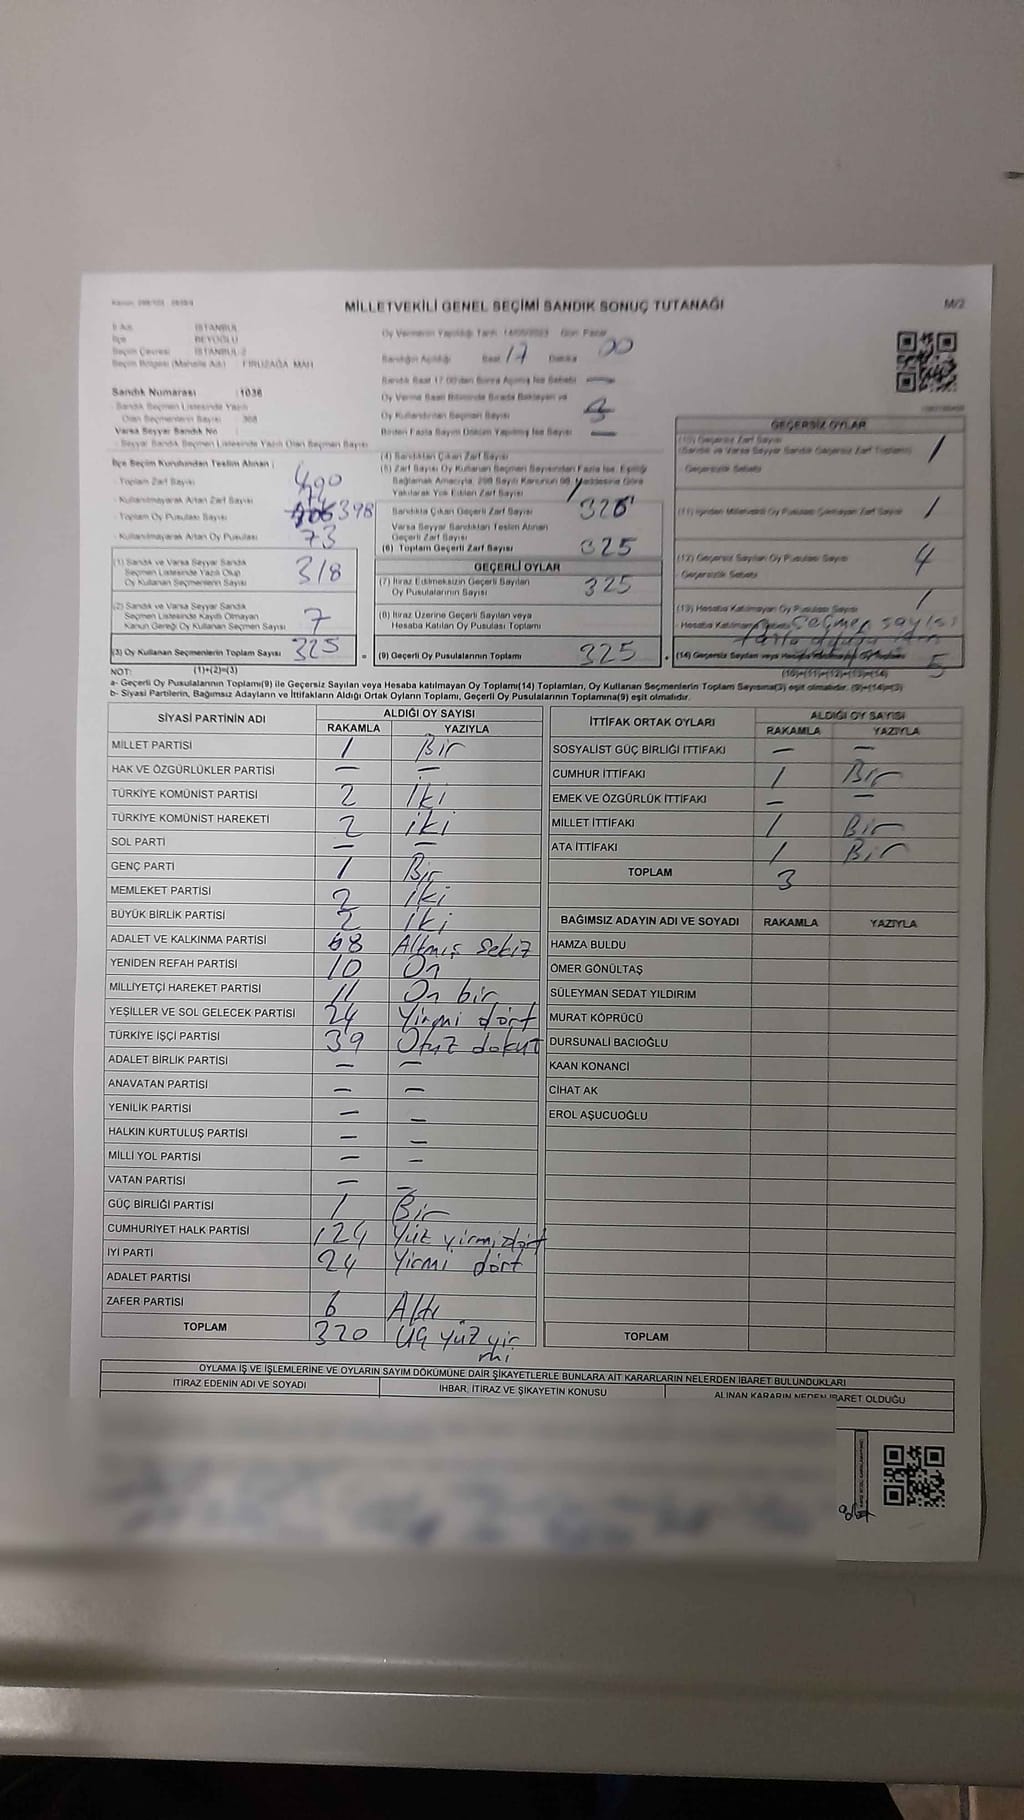 MİLLETVEKİLİ GENEL SEÇİMİ SANDIK SONUÇ TUTANAĞI
M/2
İli Adı İSTANBUL
İlçe BEYOĞLU
Seçim Çevresi İSTANBUL-2
Seçim Bölgesi (Mahalle Adı) FİRUZAĞA MAH
Sandık Numarası 1036
Sandık Seçmen Listesinde Yazılı
Olan Seçmenlerin Sayısı 368
Varsa Seyyar Sandık No
- Seyyar Sandık Seçmen Listesinde Yazılı Olan Seçmen Sayısı
Oy Vermenin Yapıldığı Tarih 14/05/2023 Gün Pazar
Sandığın Açıldığı Saat 17 Dakika 00
Sandık Saat 17.00'dan Sonra Açılmış İse Sebebi —
Oy Verme Saati Bitiminde Sırada Bekleyen ve
Oy Kullandırılan Seçmen Sayısı
Birden Fazla Sayım Döküm Yapılmış İse Sayısı —
İlçe Seçim Kurulundan Teslim Alınan
- Toplam Zarf Sayısı
- Kullanılmayarak Artan Zarf Sayısı
- Toplam Oy Pusulası Sayısı 398
- Kullanılmayarak Artan Oy Pusulası 73
(1) Sandık ve Varsa Seyyar Sandık
Seçmen Listesinde Yazılı Olup
Oy Kullanan Seçmenlerin Sayısı 318
(2) Sandık ve Varsa Seyyar Sandık
Seçmen Listesinde Kayıtlı Olmayan
Kanun Gereği Oy Kullanan Seçmen Sayısı 7
(3) Oy Kullanan Seçmenlerin Toplam Sayısı 325
(4) Sandıktan Çıkan Zarf Sayısı
(5) Zarf Sayısı Oy Kullanan Seçmen Sayısından Fazla İse, Eşitliği
Sağlamak Amacıyla, 298 Sayılı Kanunun 98. Maddesine Göre
Yakılarak Yok Edilen Zarf Sayısı 1
Sandıkta Çıkan Geçerli Zarf Sayısı
Varsa Seyyar Sandıktan Teslim Alınan
Geçerli Zarf Sayısı
(6) Toplam Geçerli Zarf Sayısı 325
GEÇERLİ OYLAR
(7) İtiraz Edilmeksizin Geçerli Sayılan
Oy Pusulalarının Sayısı 325
(8) İtiraz Üzerine Geçerli Sayılan veya
Hesaba Katılan Oy Pusulası Toplamı
= (9) Geçerli Oy Pusulalarının Toplamı 325
GEÇERSİZ OYLAR
(10) Geçersiz Zarf Sayısı 1
(Sandık ve Varsa Seyyar Sandık Geçersiz Zarf Toplamı)
- Geçersizlik Sebebi
(11) İçinden Milletvekili Oy Pusulası Çıkmayan Zarf Sayısı 1
(12) Geçersiz Sayılan Oy Pusulası Sayısı 4
- Geçersizlik Sebebi
(13) Hesaba Katılmayan Oy Pusulası Sayısı 1
- Hesaba Katılmama Sebebi seçmen sayısı
(14) Geçersiz Sayılan veya Hesaba Katılmayan Oy Toplamı 5
NOT: (1)+(2)=(3)
(10)+(11)+(12)+(13)=(14)
a- Geçerli Oy Pusulalarının Toplamı(9) ile Geçersiz Sayılan veya Hesaba katılmayan Oy Toplamı(14) Toplamları, Oy Kullanan Seçmenlerin Toplam Sayısına(3) eşit olmalıdır. (9)+(14)=(3)
b- Siyasi Partilerin, Bağımsız Adayların ve İttifakların Aldığı Ortak Oyların Toplamı, Geçerli Oy Pusulalarının Toplamına(9) eşit olmalıdır.
SİYASİ PARTİNİN ADI ALDIĞI OY SAYISI
RAKAMLA YAZIYLA
MİLLET PARTİSİ 1 Bir
HAK VE ÖZGÜRLÜKLER PARTİSİ — —
TÜRKİYE KOMÜNİST PARTİSİ 2 iki
TÜRKİYE KOMÜNİST HAREKETİ 2 iki
SOL PARTİ — —
GENÇ PARTİ 1 Bir
MEMLEKET PARTİSİ 2 iki
BÜYÜK BİRLİK PARTİSİ 2 iki
ADALET VE KALKINMA PARTİSİ 68 Altmış sekiz
YENİDEN REFAH PARTİSİ 10 On
MİLLİYETÇİ HAREKET PARTİSİ 11 On bir
YEŞİLLER VE SOL GELECEK PARTİSİ 24 Yirmi dört
TÜRKİYE İŞÇİ PARTİSİ 39 Otuz dokuz
ADALET BİRLİK PARTİSİ — —
ANAVATAN PARTİSİ — —
YENİLİK PARTİSİ — —
HALKIN KURTULUŞ PARTİSİ — —
MİLLİ YOL PARTİSİ — —
VATAN PARTİSİ — —
GÜÇ BİRLİĞİ PARTİSİ 1 Bir
CUMHURİYET HALK PARTİSİ 124 Yüz yirmi dört
İYİ PARTİ 24 Yirmi dört
ADALET PARTİSİ
ZAFER PARTİSİ 6 Altı
TOPLAM 320 Üç yüz yir
mi
İTTİFAK ORTAK OYLARI ALDIĞI OY SAYISI
RAKAMLA YAZIYLA
SOSYALİST GÜÇ BİRLİĞİ İTTİFAKI — —
CUMHUR İTTİFAKI 1 Bir
EMEK VE ÖZGÜRLÜK İTTİFAKI — —
MİLLET İTTİFAKI 1 Bir
ATA İTTİFAKI 1 Bir
TOPLAM 3
BAĞIMSIZ ADAYIN ADI VE SOYADI RAKAMLA YAZIYLA
HAMZA BULDU
ÖMER GÖNÜLTAŞ
SÜLEYMAN SEDAT YILDIRIM
MURAT KÖPRÜCÜ
DURSUNALİ BACIOĞLU
KAAN KONANCİ
CİHAT AK
EROL AŞUCUOĞLU
TOPLAM
OYLAMA İŞ VE İŞLEMLERİNE VE OYLARIN SAYIM DÖKÜMÜNE DAİR ŞİKAYETLERLE BUNLARA AİT KARARLARIN NELERDEN İBARET BULUNDUKLARI
İTİRAZ EDENİN ADI VE SOYADI İHBAR, İTİRAZ VE ŞİKAYETİN KONUSU ALINAN KARARIN NEDEN İBARET OLDUĞU